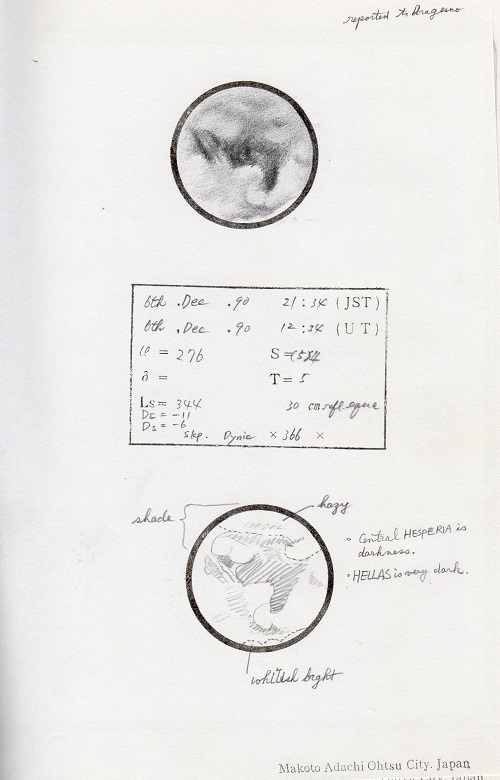 reported to Dragesco
6th .Dec .90 21:34 (JST)
6th .Dec .90 12:34 (UT)
ω = 276 S=
δ = T= 5
Ls= 344 30 cm refl
DE = -11
Ds = -6
×366 ×
shade
hazy
• Central HESPERIA is
darkness.
• HELLAS is very dark.
whitish brght
Makoto Adachi Ohtsu City. Japan